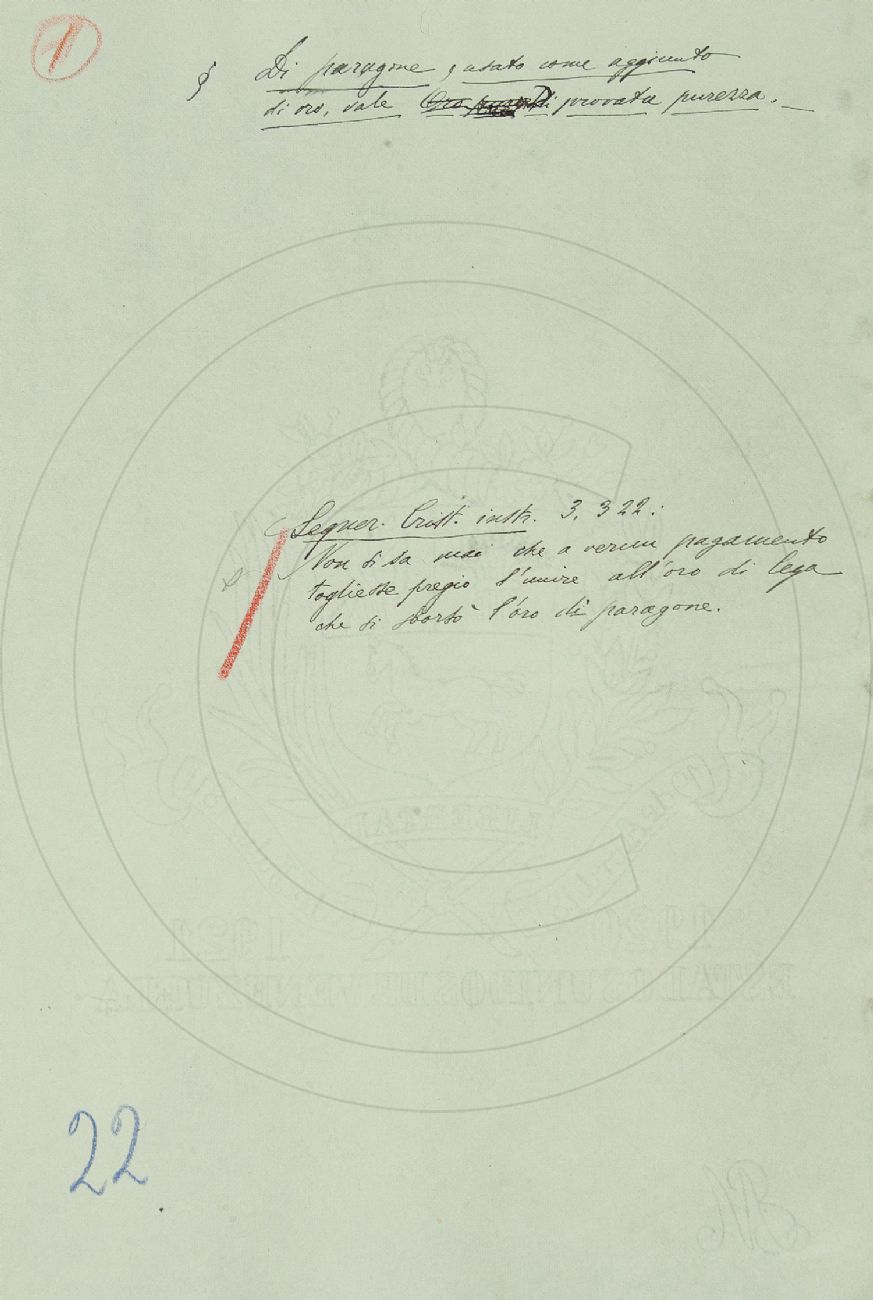 1
§ Di paragone, usato come aggiunto
di oro, vale Oro Di provata purezza.
Segner. Crist. instr. 3. 322:
Non si sa mai che a verun pagamento
togliesse pregio l'unire all'oro di lega
che si sborsò l'oro di paragone.
LIBERTAD
1921 1920
ESTADOS UNIDOS DE VENEZUELA
22